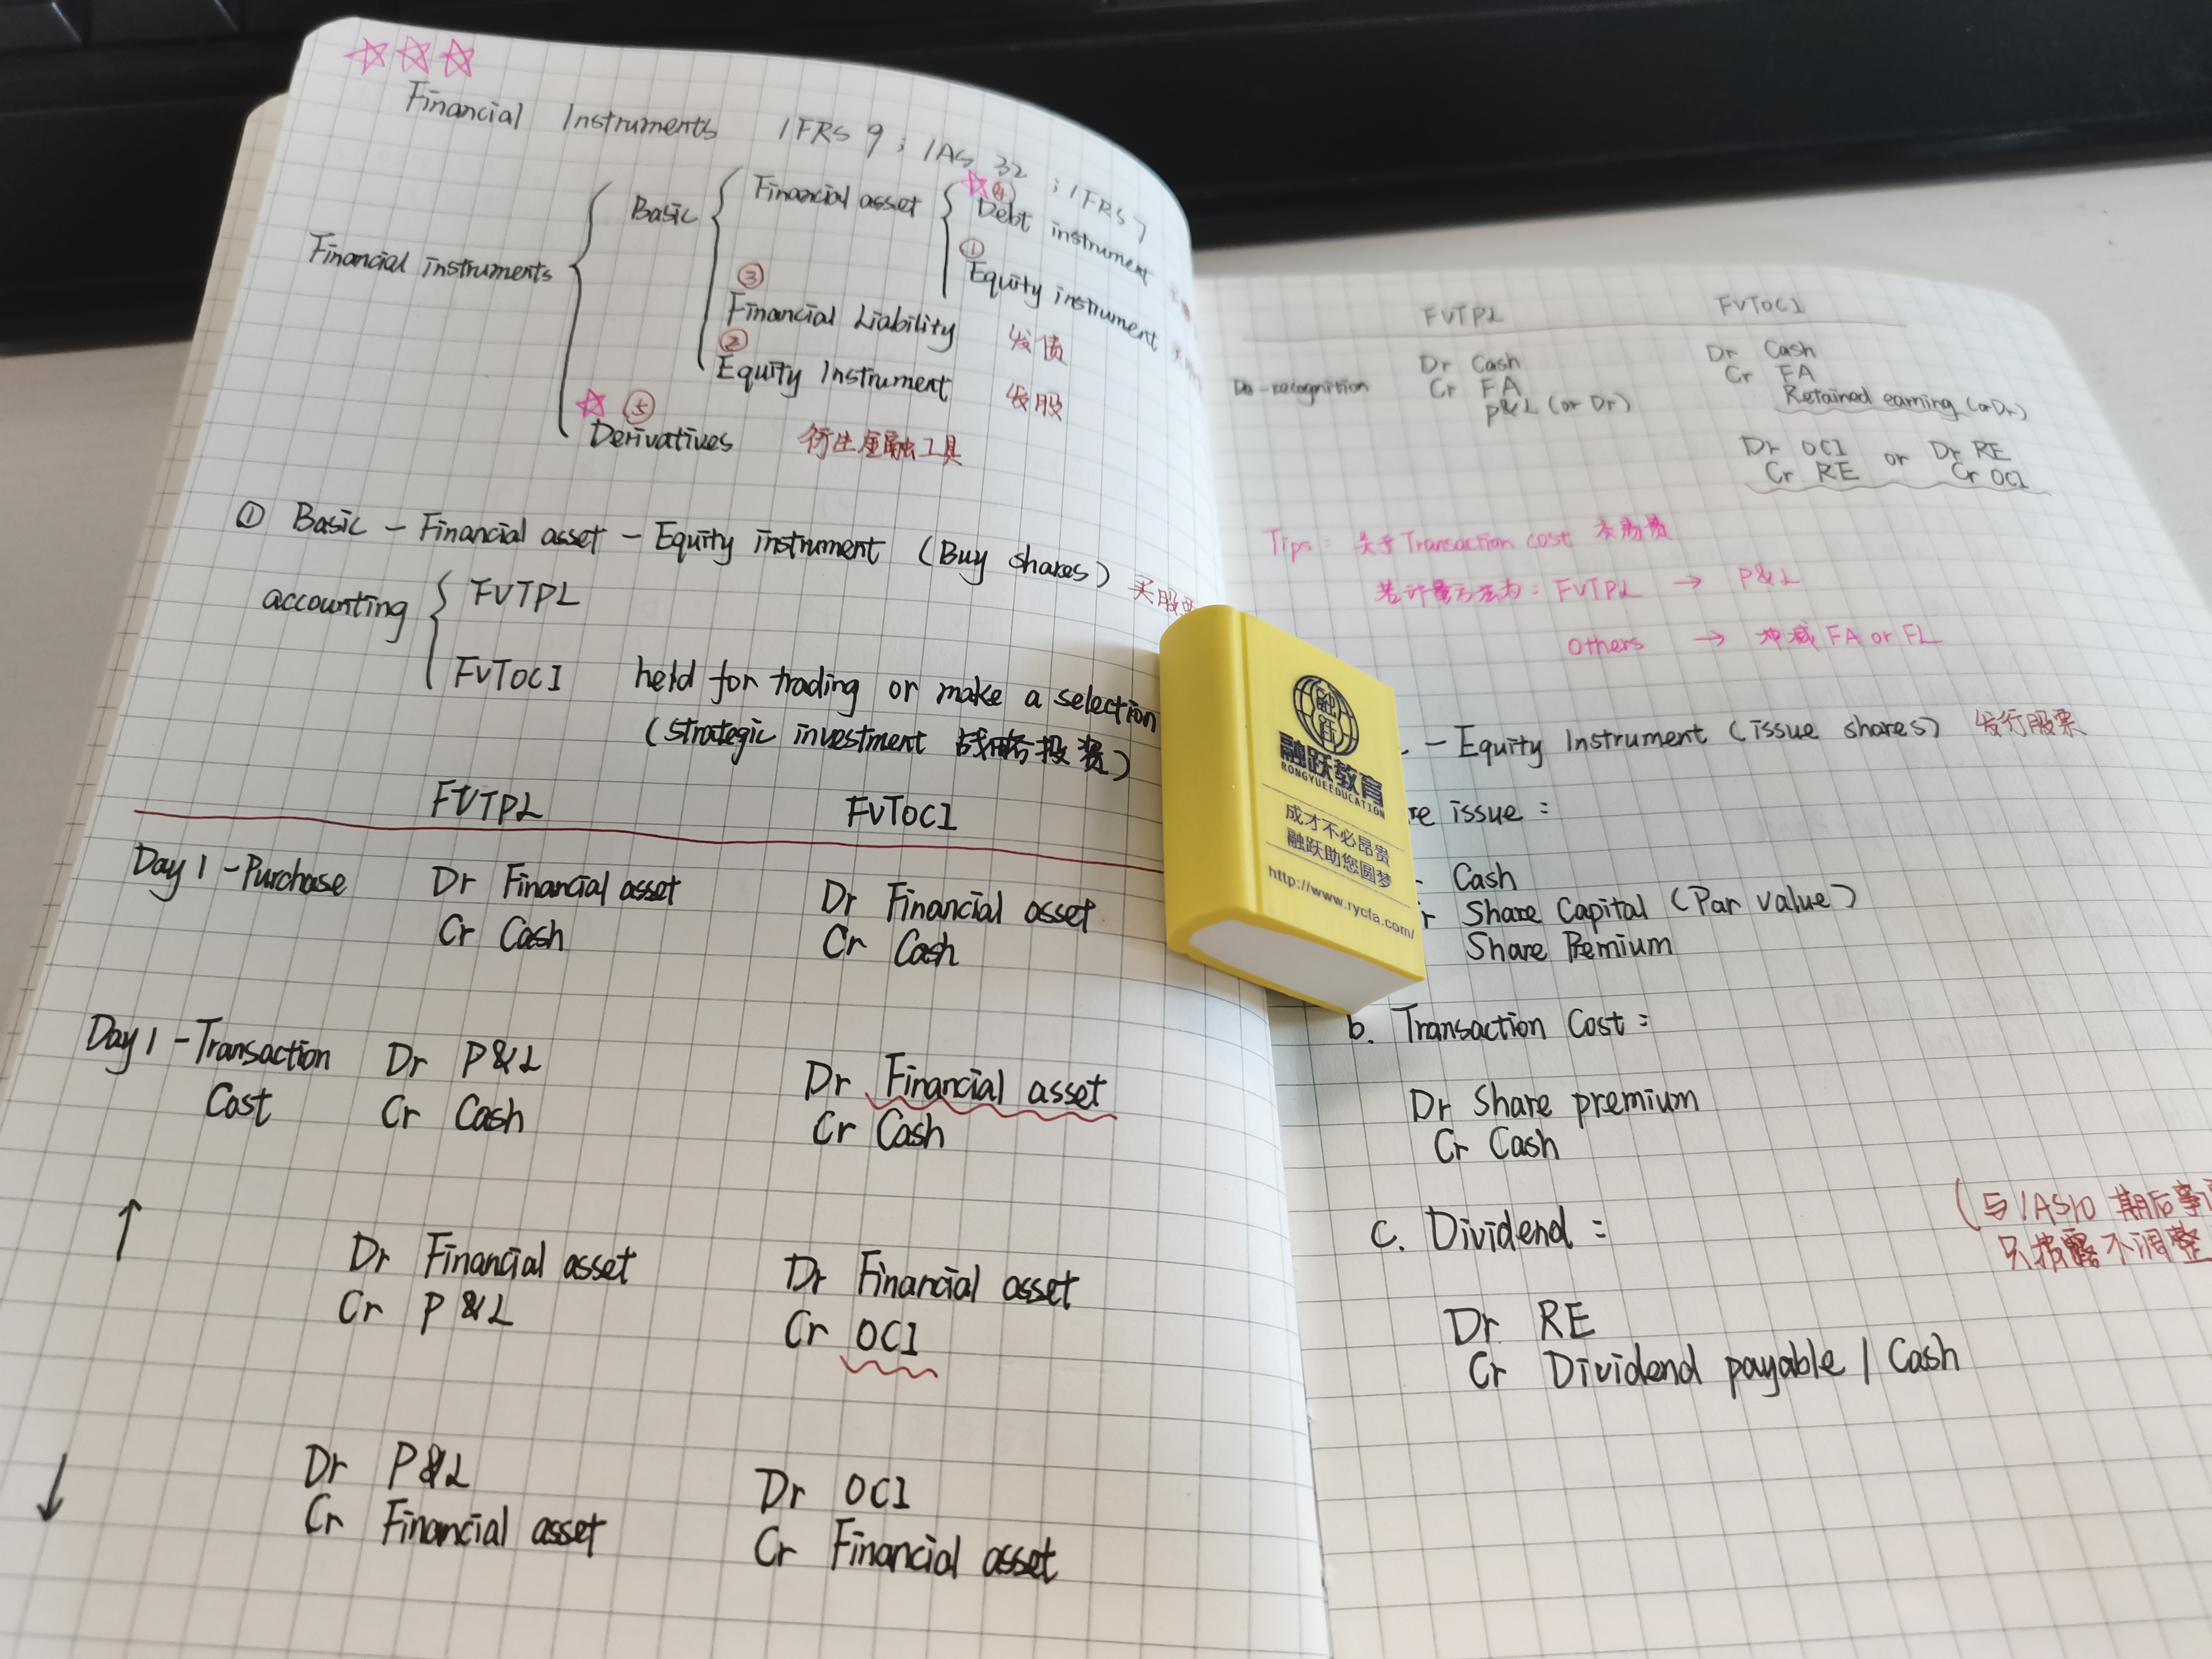 Financial Instruments IFRS 9 ; IAS 32 ; IFRS 7
Financial instruments
Basic
Financial asset
④
Debt instrument
①
Equity instrument
③
Financial Liability 发债
②
Equity Instrument 发股
⑤
Derivatives 衍生金融工具
① Basic - Financial asset - Equity instrument (Buy shares) 买股票
accounting
FVTPL
FVTOCI held for trading or make a selection
(strategic investment 战略投资)
FVTPL FVTOCI
Day 1 - Purchase Dr Financial asset Dr Financial asset
Cr Cash Cr Cash
Day 1 - Transaction Dr P&L Dr Financial asset
Cost Cr Cash Cr Cash
↑ Dr Financial asset Dr Financial asset
Cr P&L Cr OCI
↓ Dr P&L Dr OCI
Cr Financial asset Cr Financial asset
FVTPL FVTOCI
De-recognition Dr Cash Dr Cash
Cr FA Cr FA
P&L (or Dr) Retained earning (or Dr)
Dr OCI or Dr RE
Cr RE Cr OCI
Tips: 关于Transaction cost 交易费
若计量方法为: FVTPL → P&L
Others → 冲减 FA or FL
- Equity Instrument (issue shares) 发行股票
re issue:
Cash
r Share Capital (Par value)
Share Premium
b. Transaction Cost:
Dr Share premium
Cr Cash
c. Dividend:
(与IAS10 期后事
只披露不调整
Dr RE
Cr Dividend payable / Cash
融跃
融跃教育
RONGYUEEDUCATION
成才不必昂贵
融跃助您圆梦
http://www.rycfa.com/